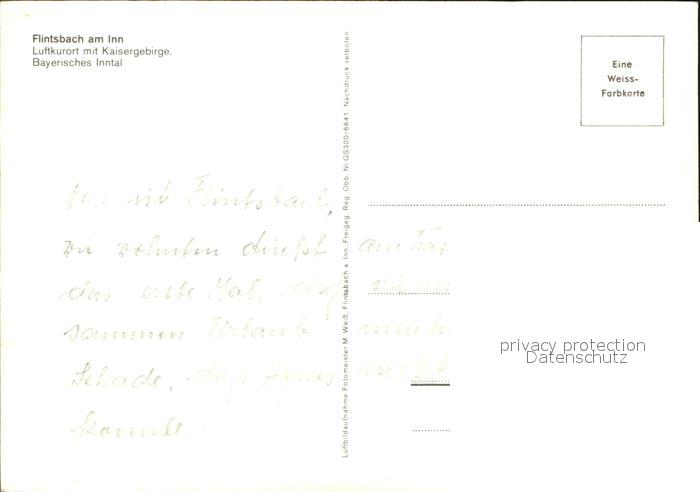 Flintsbach am Inn
Luftkurort mit Kaisergebirge.
Bayerisches Inntal
Eine
Weiss-
Farbkarte
Luftbildaufnahme Fotomeister M. Weiß, Flintsbach a. Inn, Freigeg. Reg. Obb. Nr. GS300/6641 Nachdruck verboten
ist Flintsbach,
wohnten direkt am
das erste Mal, daß
sammen Urlaub
Schade, daß nicht
konnte
privacy protection
Datenschutz